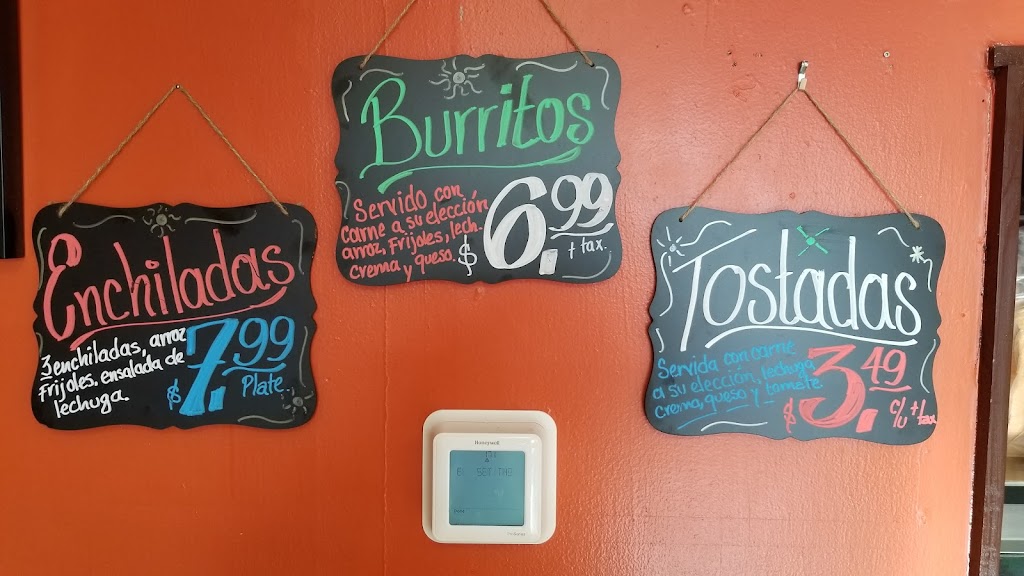 Enchiladas
3 enchiladas, arroz
Frijoles, ensalada de
lechuga.
$7.99
Plate.
Burritos
Servido con
carne a su elección,
arroz, Frijoles, lech.
crema y queso.
$6.99
+ tax.
Tostadas
Servida con carne
a su elección, lechuga
crema, queso y tomate
$3.49
c/u + tax
Honeywell